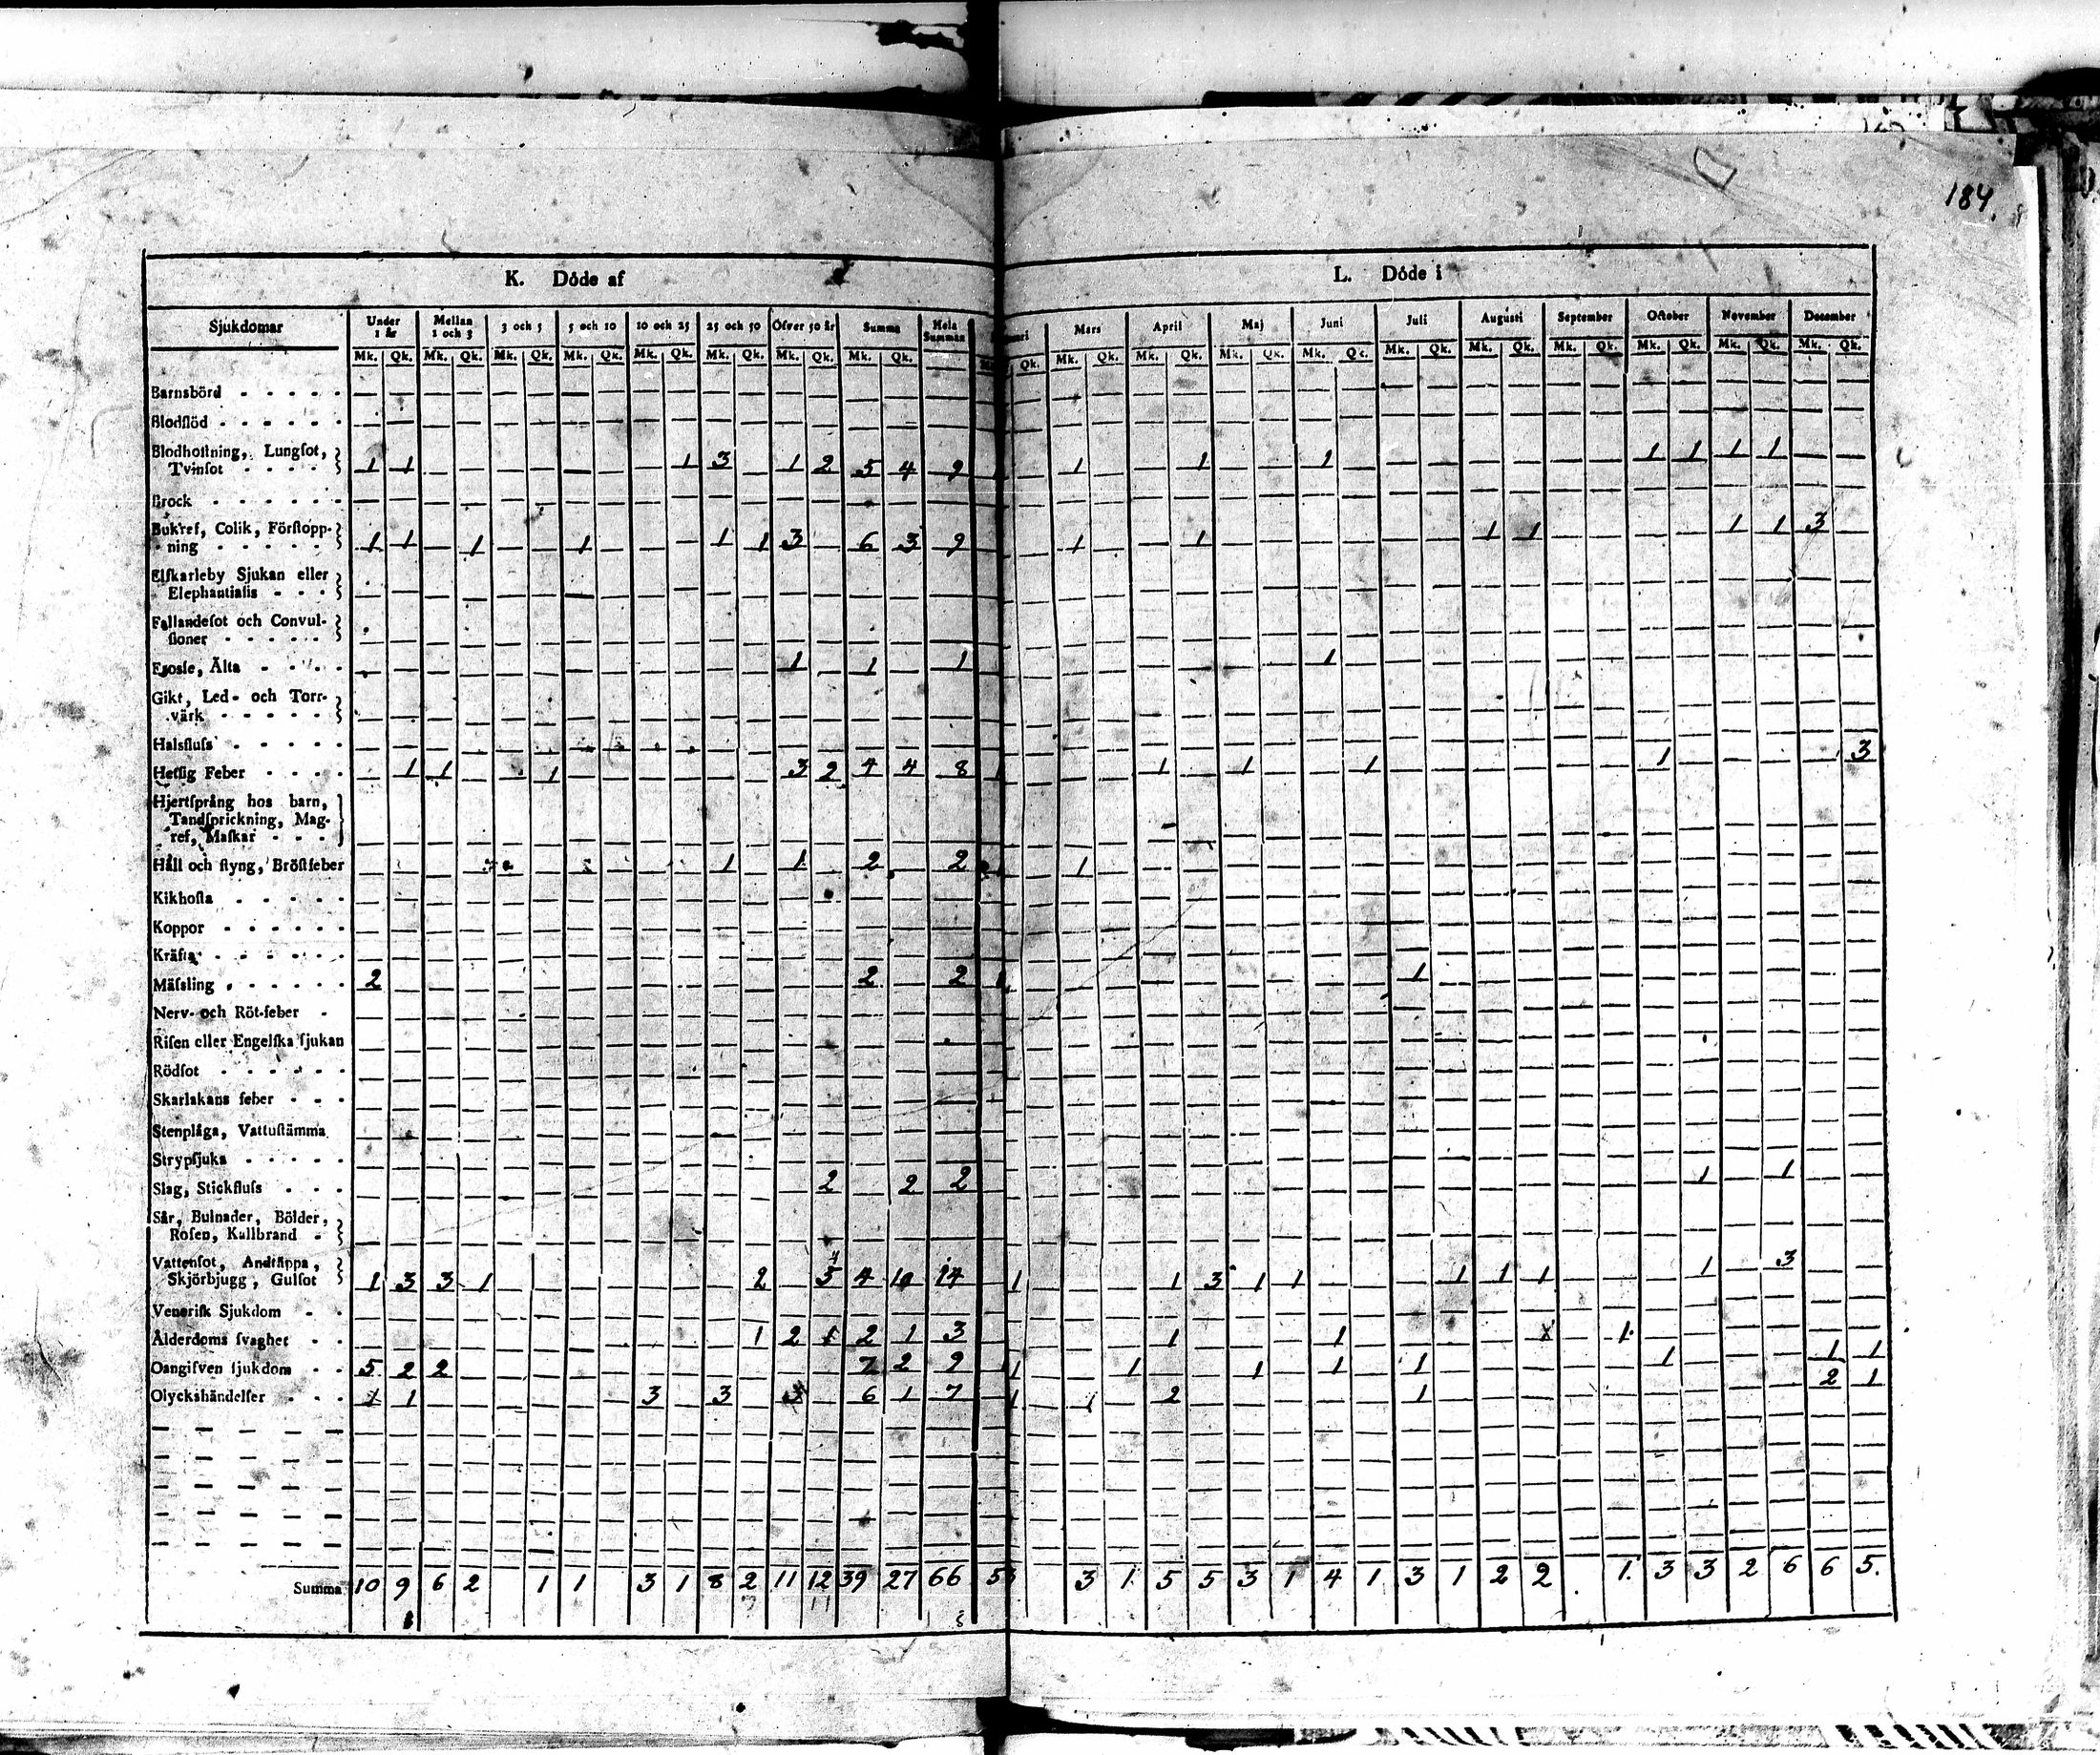 184.
K. Döde af
L. Döde i
Sjukdomar Under 1 år Mellan 1 och 3 3 och 5 5 och 10 10 och 25 25 och 50 Öfver 50 år Summa Hela Summan Mars April Maj Juni Juli Augusti September October November December
Mk. Qk. Mk. Qk. Mk. Qk. Mk. Qk. Mk. Qk. Mk. Qk. Mk. Qk. Mk. Qk. Qk. Mk. Qk. Mk. Qk. Mk. Qk. Mk. Qk. Mk. Qk. Mk. Qk. Mk. Qk. Mk. Qk. Mk. Qk. Mk. Qk.
Barnsbörd
Blodflöd
Blodhostning, Lungsot,
Tvinsot 1 1 1 3 1 2 5 4 9 1 1 1 1 1 1 1
Brock
Bukref, Colik, Förstopp-
ning 1 1 1 1 1 1 3 6 3 9 1 1 1 1 1 1 3
Elfkarleby Sjukan eller
Elephantiasis
Fallandesot och Convul-
sioner
Frossa, Älta 1 1 1 1
Gikt, Led- och Torr-
värk
Halsfluss
Hetsig Feber 1 1 1 3 2 4 4 8 1 1 1 1 1 3
Hjertsprång hos barn,
Tandsprickning, Mag-
ref, Maskar
Håll och styng, Bröstfeber 1 1 2 2 1
Kikhosta
Koppor
Kräfta
Mässling 2 2 2 1 1
Nerv- och Röt-feber
Risen eller Engelska sjukan
Rödsot
Skarlakans feber
Stenplåga, Vattustämma
Strypsjuka
Slag, Stickfluss 2 2 2 1 1
Sår, Bulnader, Bölder,
Rosen, Kallbrand
Vattensot, Andtäppa,
Skjörbjugg, Gulsot 1 3 3 1 2 4 10 14 1 1 3 1 1 1 1 1 1 3
Venerisk Sjukdom
Ålderdoms svaghet 1 2 2 1 3 1 1 1 1 1
Oangifven sjukdom 5 2 2 7 2 9 1 1 1 1 1 1 2 1
Olyckshändelser 1 3 3 6 1 7 1 1 2 1
Summa 10 9 6 2 1 1 3 1 8 2 11 12 39 27 66 5 3 1 5 5 3 1 4 1 3 1 2 2 1. 3 3 2 6 6 5.